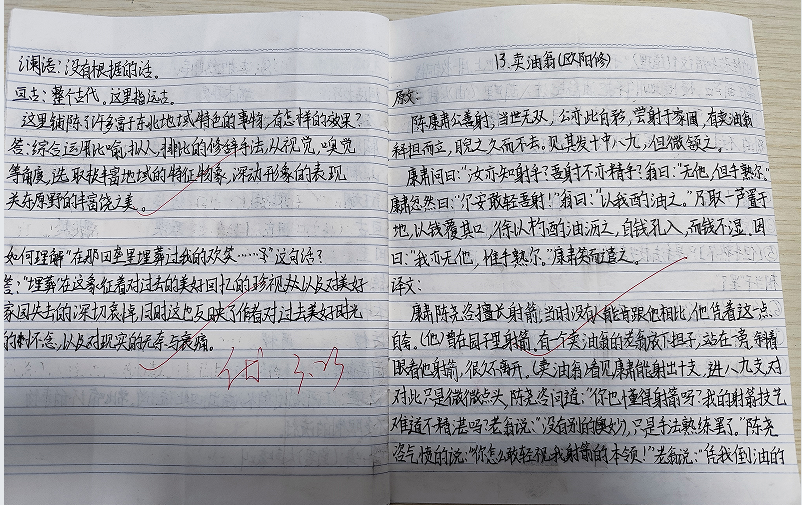 谰语：没有根据的话。
亘古：整个古代。这里指远古。
这里铺陈了许多富于东北地域特色的事物，有怎样的效果？
答：综合运用比喻、拟人、排比的修辞手法，从视觉，嗅觉
等角度，选取极丰富地域的特征物象，深动形象的表现
关东原野的丰富饶之美。
如何理解“在那田垄里埋葬过我的欢笑……”这句话？
答：“埋葬”在这象征着对过去的美好回忆的珍视以及对美好
家园失去的深切哀悼，同时这也反映了作者对过去美好时光
的怀念，以及对现实的无奈与哀痛。
优 3.23
13.卖油翁(欧阳修)
原文：
陈康肃公善射，当世无双，公亦以此自矜，尝射于家圃，有卖油翁
释担而立，睨之久而不去。见其发十中八九，但微颔之。
康肃问曰：“汝亦知射乎？吾射不亦精乎？”翁曰：“无他，但手熟尔。”
康肃忿然曰：“尔安敢轻吾射！”翁曰：“以我酌油之。”乃取一葫芦置于
地，以钱覆其口，徐以杓酌油沥之，自钱孔入，而钱不湿。因
曰：“我亦无他，惟手熟尔。”康肃笑而遣之。
译文：
康肃陈尧咨擅长射箭，当时没有人能有跟他相比，他凭着这一点
自夸。(他)曾在园子里射箭，有一个卖油的老翁放下担子，站在一旁，斜着
眼看他射箭，很久不离开。(卖油翁)看见康肃能射出十支，进八九支，对
对此只是微微点头，陈尧咨问道：“你也懂得射箭吗？我的射箭技艺
难道不精湛吗？老翁说：“没有别的奥妙，只是手法熟练罢了。”陈尧
咨气愤的说：“你怎么敢轻视我射箭的本领！”老翁说：“凭我倒油的